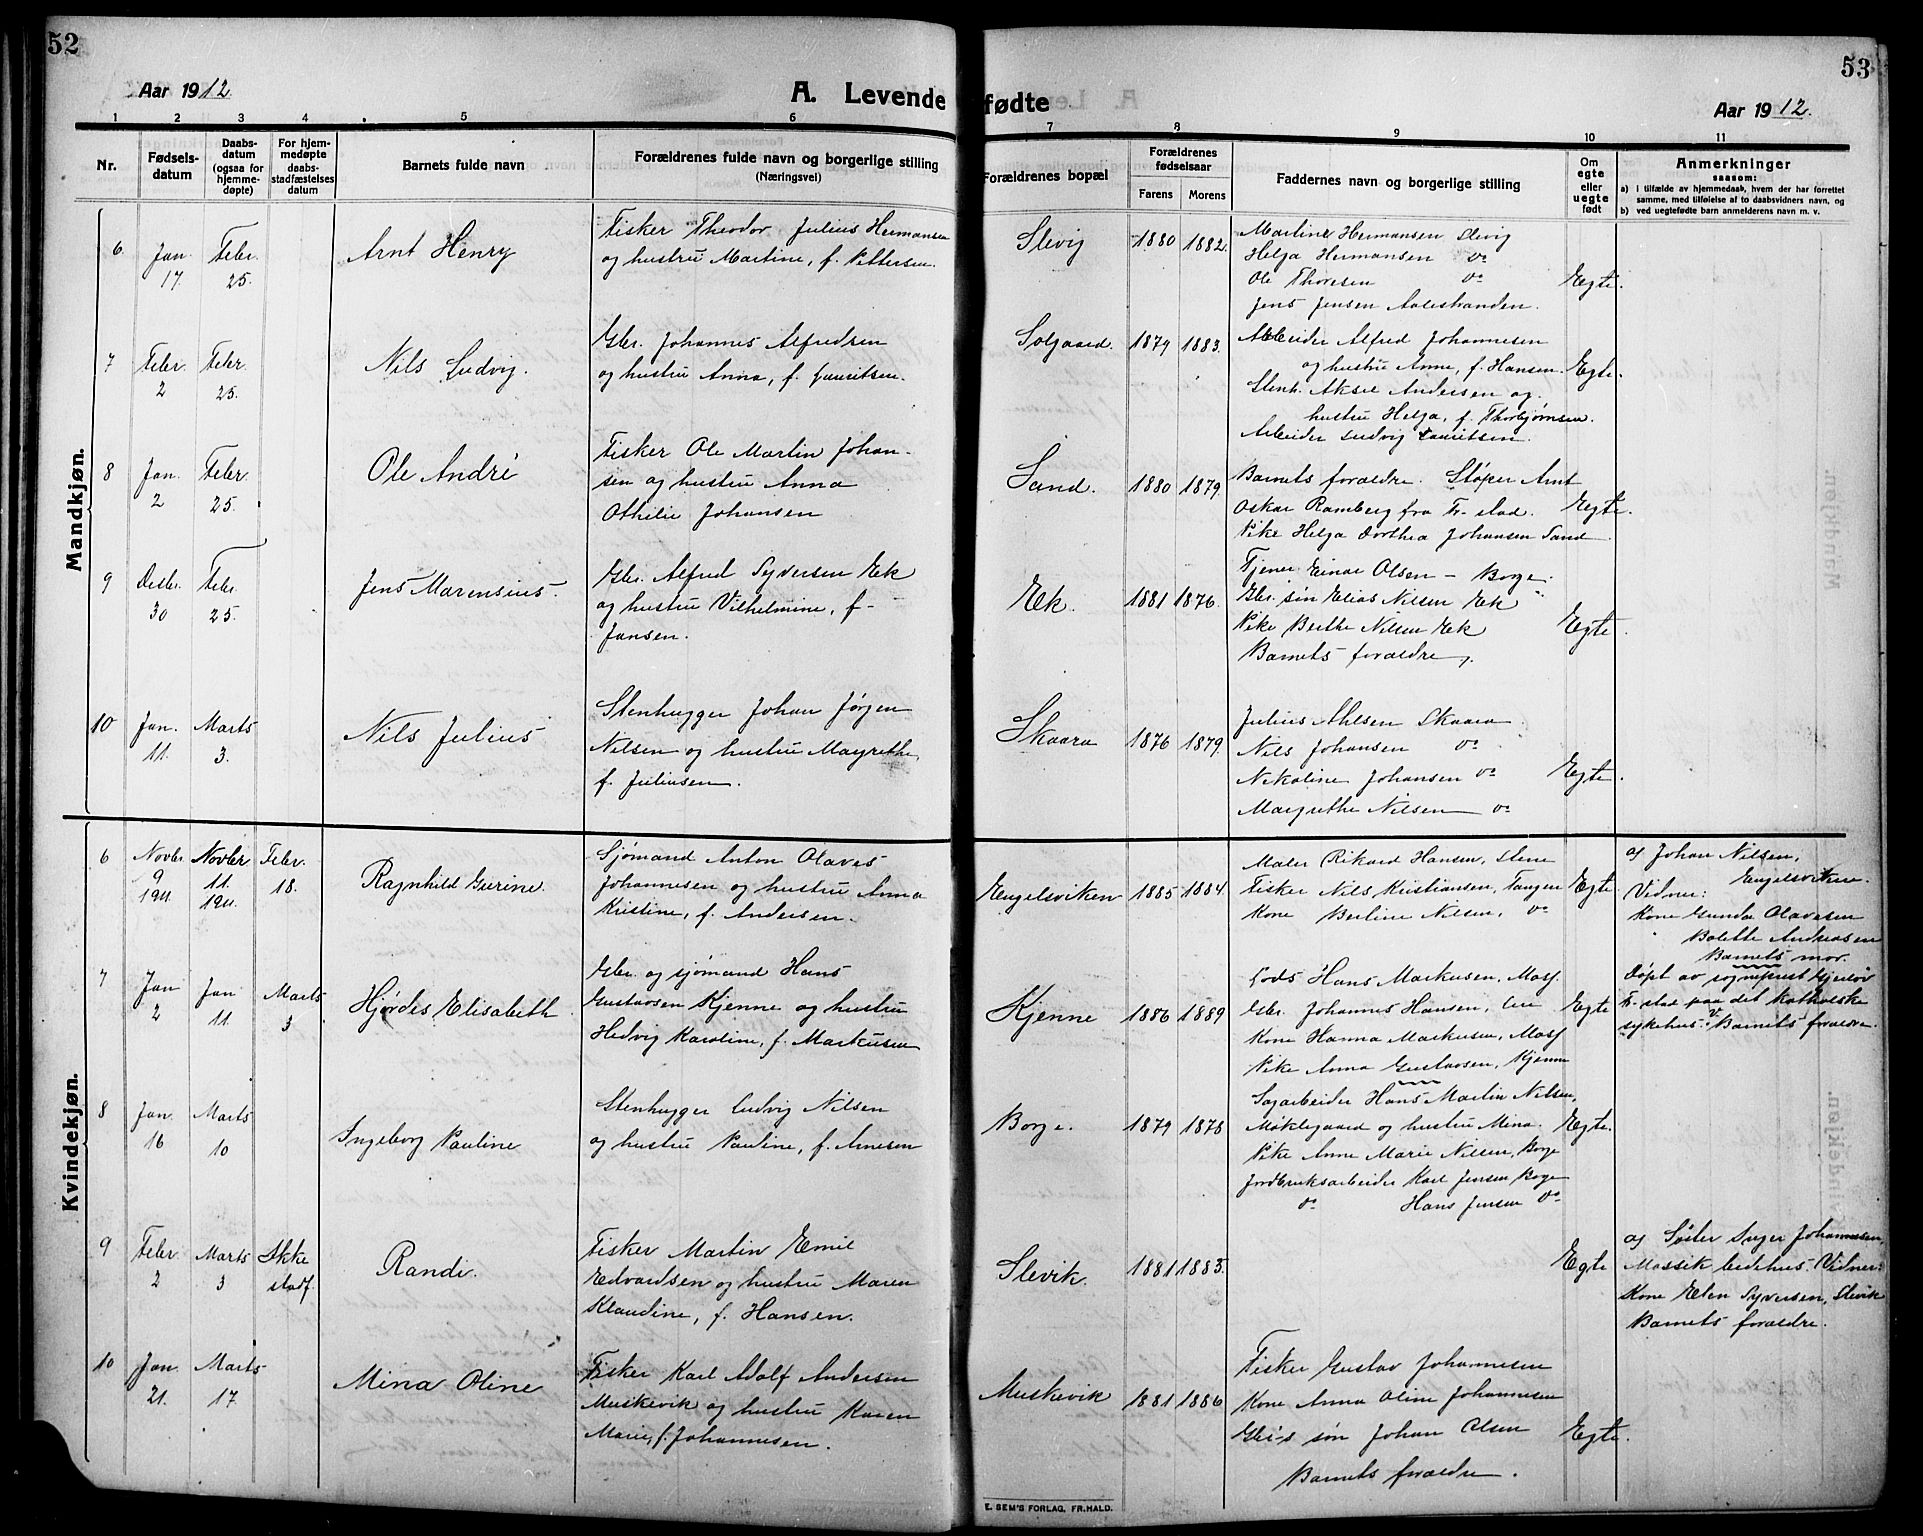 52
Aar 1912.
A. Levende
1 2 3 4 5 6
Nr.
Fødsels-
datum
Daabs-
datum
(ogsaa for
hjemme-
døpte)
For hjem-
medøpte
daabs-
stadfæstelses
datum
Barnets fulde navn
Forældrenes fulde navn og borgerlige stilling
(Næringsvei)
Mandkjøn.
6 Jan. 17. Febr. 25. Arnt Henry
Fisker Theodor Julius Hermansen
og hustru Martine, f. Pettersen.
7 Febr. 2 Febr. 25. Nils Ludvig.
Gbr. Johannes Alfredsen
og hustru Anna, f. Lauritsen.
8 Jan. 2 Febr. 25. Ole André
Fisker Ole Martin Johan-
sen og hustru Anna
Othilie Johansen
9 Desbr. 30 Febr. 25. Jens Marensius.
Gbr. Alfred Syversen Ek
og hustru Vilhelmine, f.
Jansen.
10 Jan. 11. Marts 3. Nils Julius
Stenhugger Johan Jørgen
Nilsen og hustru Margrethe,
f. Juliusen.
Kvindekjøn.
6 Novbr. 9 1911. Novbr. 11. 1911. Febr. 18. Ragnhild Gurine.
Sjømand Anton Olaves
Johannesen og hustru Anna
Kristine, f. Andersen.
7 Jan 2 Jan 11. Marts 3 Hjørdes Elisabeth
Gbr. og sjømand Hans
Gustavsen Kjenne og hustru
Hedvig Karoline, f. Markusen
8 Jan. 16 Marts 10 Ingeborg Pauline
Stenhugger Ludvig Nilsen
og hustru Pauline, f. Arnesen
9 Febr. 2 Marts 3 Ikke stadf. Randi.
Fisker Martin Emil
Edvardsen og hustru Maren
Klaudine, f. Hansen.
10 Jan. 21. Marts 17. Mina Oline
Fisker Karl Adolf Andersen
Muskevik og hustru Karen
Marie, f. Johannesen.
53
fødte
Aar 1912.
7 8 9 10 11
Forældrenes bopæl
Forældrenes
fødselsaar
Farens Morens
Faddernes navn og borgerlige stilling
Om
egte
eller
uegte
født
Anmerkninger
saasom:
a) i tilfælde av hjemmedaab, hvem der har forrettet
samme, med tilføielse af to daabsvidners navn, og
b) ved uegtefødte barn anmelderens navn m. v.
Slevig 1880 1882.
Martine Hermansen Slevig
Helga Hermansen do
Ole Thoresen do
Jens Jensen Aalestranden.
Egte.
Solgaard. 1879 1883.
Arbeider Alfred Johannesen
og hustru Anne, f. Hansen.
Stenh. Aksel Andersen og
hustru Helga, f. Thorbjørnsen.
Arbeider Ludvig Lauritsen.
Egte.
Sand. 1880 1879.
Barnets forældre. Støper Arnt
Oskar Ramberg fra Fr.stad.
Pike Helga Dorthea Johansen Sand
Egte.
Ek. 1881 1876.
Tjener Einar Olsen - Borge.
Gbr. søn Elias Nilsen Ek
Pike Berthe Nilsen Ek
Barnets forældre.
Egte.
Skaara 1876 1879.
Julius Ahlsen Skaara
Nils Johansen do
Nikoline Johansen do
Margrethe Nilsen do
Egte.
Engelsviken 1885 1884.
Maler Rikard Hansen, Stene
Fisker Nils Kristiansen, Tangen
Kone Berline Nilsen, do
Egte.
a) Johan Nilsen,
Engelsviken.
Vidner:
Kone Gunda Olavesen
Bolette Andreasen
Barnets mor.
Kjenne 1886 1889
Gods Hans Markusen, Moss.
Gbr. Johannes Hansen,
Kone Hanna Markusen, Moss
Pike Anna Gustavsen, Kjenne
Egte
Døpt av sogneprest Gjerløv
Fr.stad paa det katholske
sykehus. V. Barnets forældre.
Borge. 1879 1878
Sagarbeider Hans Martin Nilsen,
Møklegaard og hustru Mina.
Pike Anne Marie Nilsen, Borge
Jordbruksarbeider Karl Jensen Borge
do Hans Jensen do
Egte.
Slevik. 1881 1883.
Egte
a) Søster Inger Johannesen,
Kone Elen Syversen, Slevik
Barnets forældre.
Muskevik 1881 1886
Fisker Gustav Johannesen
Kone Anna Oline Johannesen
Gbr's søn Johan Olsen
Barnets forældre.
Egte.
E. SEM'S FORLAG, FR.HALD.